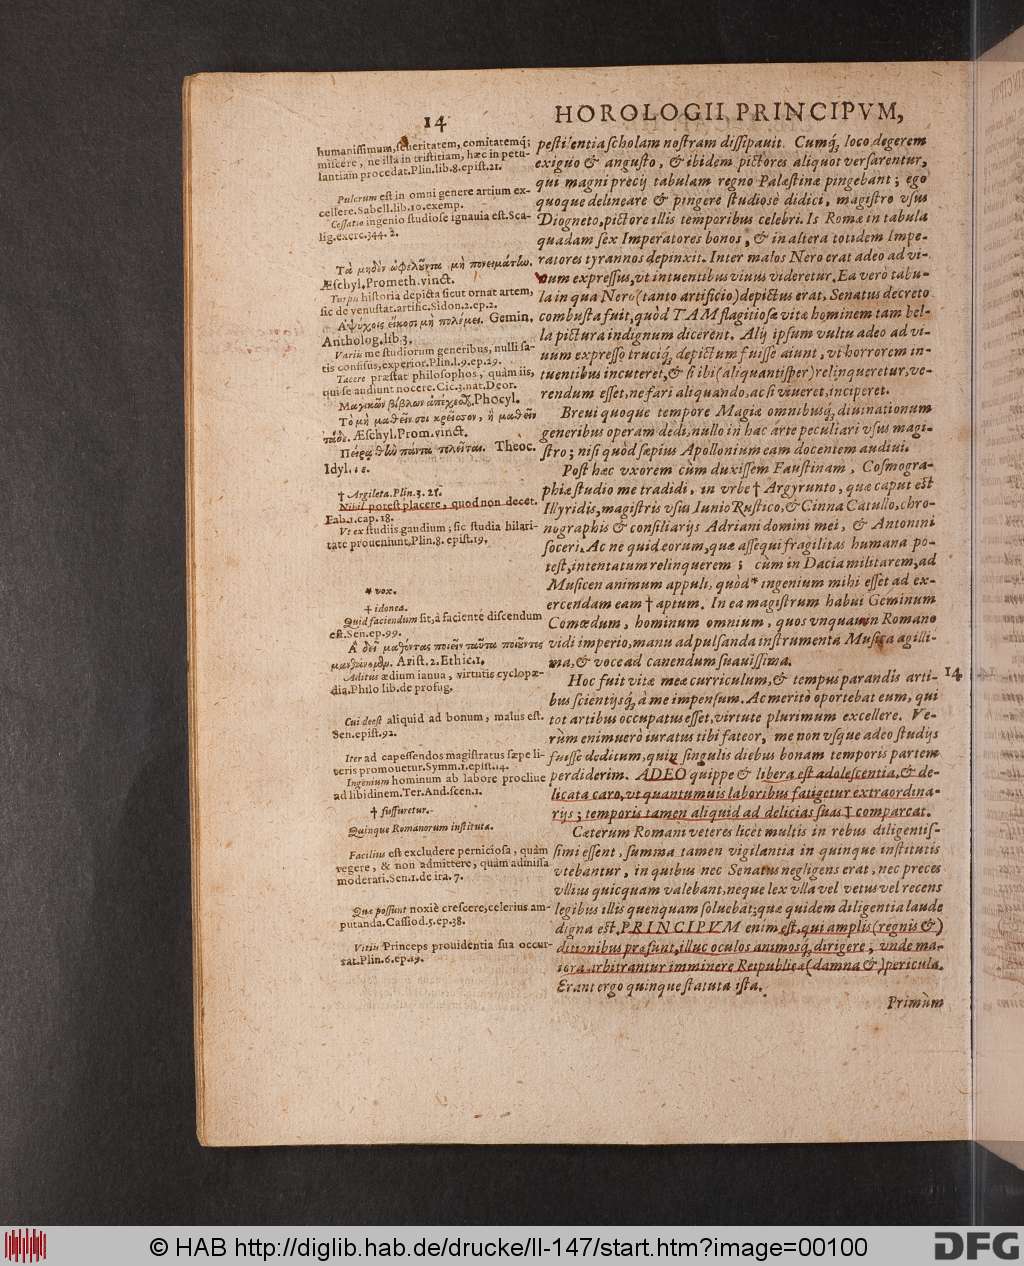 14
HOROLOGII PRINCIPVM,
humanissimum, seueritatem, comitatemq́;
miscere, ne illa in tristitiam, hæc in petu-
lantiam procedat. Plin. lib. 8. epist. 21.
Pulcrum est in omni genere artium ex-
cellere. Sabell. lib. 10. exemp.
Cessatio ingenio studiose ignauia est. Sca-
lig. exerc. 344. 2.
Τὰ μηδὲν ὠφελοῦντα μὴ πόνει μάτlω.
Æschyl. Prometh. vinct.
Turpis historia depicta sicut ornat artem,
sic deuenustat artific. Sidon. 2. ep. 2.
Gemin.
Antholog. lib. 3.
Variis me studiorum generibus, nulli sa-
tis confisus, experior. Plin. l. 9. ep. 29.
Tacere præstat philosophos, quàm iis,
qui se audiunt nocere. Cic. 3. nat. Deor.
Μαγικῶν βίβλων ἀπέχεσθαι. Phocyl.
Τὸ μὴ μαθεῖν σοι κρεῖσσον, ἢ μαθεῖν
τάδε. Æschyl. Prom. vinct.
Πείρᾳ θlω πάντα τελεῖται. Theoc.
Idyl. 15.
† Argileta. Plin. 3. 21.
Nihil potest placere, quod non decet.
Fab. 1. cap. 18.
Vt ex studiis gaudium; sic studia hilari-
tate proueniunt. Plin. 8. epist. 19.
* vox.
† idonea.
Quid faciendum sit, à faciente discendum
est. Sen. ep. 99.
Ἃ δεῖ μαθόντας ποιεῖν ταῦτα ποιοῦντες
μανθάνομεν. Arist. 2. Ethic. 1.
Aditus ædium ianua, virtutis cyclopæ-
dia. Philo lib. de profug.
Cui deest aliquid ad bonum, malus est.
Sen. epist. 92.
Iter ad capessendos magistratus sæpe li-
teris promouetur. Symm. 1. epist. 14.
Ingenium hominum ab labore procliue
ad libidinem. Ter. And. scen. 1.
† suffuretur.
Quinque Romanorum instituta.
Facilius est excludere perniciosa, quàm
regere, & non admittere, quàm admissa
moderari. Sen. 1. de ira. 7.
Quæ possunt noxiè crescere, celerius am-
putanda. Cassiod. 5. ep. 38.
Vitiis Princeps prouidentia sua occur-
rat. Plin. 6. ep. 19.
pestilentia scholam nostram dissipauit. Cumq́; loco degerem
exiguo & angusto, & ibidem pictores aliquot versarentur,
qui magni precij tabulam regno Palæstinæ pingebant; ego
quoque delineare & pingere studiosè didici, magistro vsus
Diogneto, pictore illis temporibus celebri. Is Romæ in tabula
quadam sex Imperatores bonos, & in altera totidem Impe-
ratores tyrannos depinxit. Inter malos Nero erat adeo ad vi-
uum expressus, vt intuentibus viuus videretur. Ea verò tabu-
la in qua Nero (tanto artificio) depictus erat, Senatus decreto
combusta fuit, quòd TAM flagitiosæ vitæ hominem tam bel-
la pictura indignum dicerent. Alij ipsum vultu adeo ad vi-
uum expresso truciq́; depictum fuisse aiunt, vt horrorem in-
tuentibus incuteret, & si ibi (aliquantisper) relinqueretur, ve-
rendum esset, ne fari aliquando, ac si viueret, inciperet.
Breui quoque tempore Magiæ omnibusq́; diuinationum
generibus operam dedi, nullo in hac arte peculiari vsus magi-
stro; nisi quòd sæpius Apollonium eam docentem audiui.
Post hæc vxorem cùm duxissem Faustinam, Cosmogra-
phiæ studio me tradidi, in vrbe † Argyrunto, quæ caput est
Illyridis, magistris vsus Iunio Rustico, & Cinna Catullo, chro-
nographis & consiliarijs Adriani domini mei, & Antonini
soceri. Ac ne quid eorum, quæ assequi fragilitas humana po-
test, intentatum relinquerem; cùm in Dacia militarem, ad
Musicen animum appuli, quòd * ingenium mihi esset ad ex-
ercendam eam † aptum. In ea magistrum habui Geminum
Comœdum, hominum omnium, quos vnquam in Romano
vidi imperio, manu ad pulsanda instrumenta Musica agilli-
ma, & voce ad canendum suauissima.
14
Hoc fuit vitæ meæ curriculum, & tempus parandis arti-
bus scientijsq́; à me impensum. Ac meritò oportebat eum, qui
tot artibus occupatus esset, virtute plurimum excellere. Ve-
rùm enimuerò iuratus tibi fateor, me non vsque adeo studijs
fuisse deditum, quin singulis diebus bonam temporis partem
perdiderim. ADEO quippe & libera est adolescentia, & de-
licata caro, vt quantumuis laboribus fatigetur extraordina-
rijs; temporis tamen aliquid ad delicias suas † compareat.
Cæterum Romani veteres licet multis in rebus diligentis-
simi essent, summa tamen vigilantia in quinque institutis
vtebantur, in quibus nec Senatus negligens erat, nec preces
vllius quicquam valebant, neque lex vlla vel vetus vel recens
legibus illis quenquam soluebat; quæ quidem diligentia laude
digna est. PRINCIPVM enim est, qui amplis (regnis &)
ditionibus præsunt, illuc oculos animosq́; dirigere, vnde ma-
iora arbitrantur imminere Reipublicæ (damna &) pericula.
Erant ergo quinque statuta ista.
Primùm
© HAB http://diglib.hab.de/drucke/ll-147/start.htm?image=00100
DFG